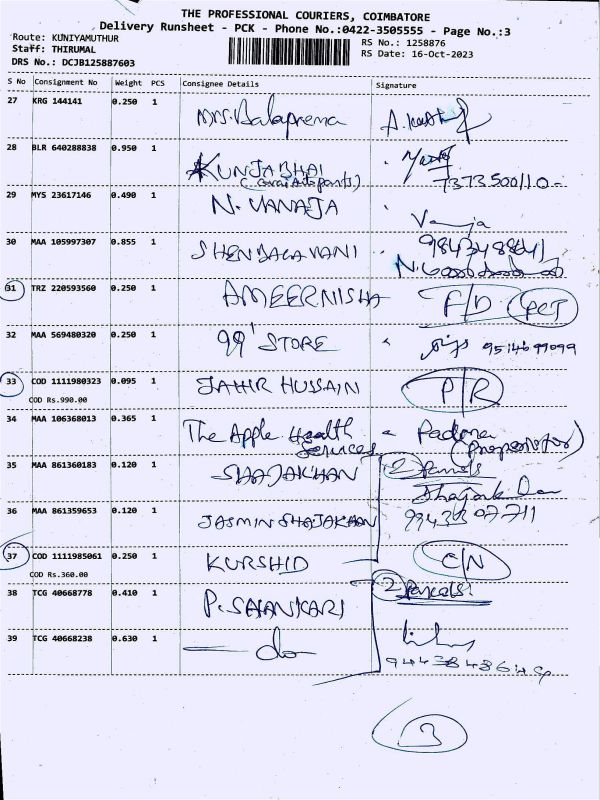 THE PROFESSIONAL COURIERS, COIMBATORE
Delivery Runsheet - PCK - Phone No.:0422-3505555 - Page No.:3
Route: KUNIYAMUTHUR
RS No.: 1258876
Staff: THIRUMAL
RS Date: 16-Oct-2023
DRS No.: DCJB125887603
S No Consignment No Weight PCS Consignee Details Signature
27 KRG 144141 0.250 1 Mrs. Balaprema
28 BLR 640288838 0.950 1 KUNJABHAI
7373500110
29 MYS 23617146 0.490 1 N. VANAJA Vanaja
30 MAA 105997307 0.855 1 SHENBAGAVANI
31 TRZ 220593560 0.250 1 AMEERNISHA F/D
32 MAA 569480320 0.250 1 99' STORE
33 COD 1111980323 0.095 1 JAHIR HUSSAIN P/R
COD Rs.990.00
34 MAA 106368013 0.365 1 The Apple Health
Services
35 MAA 861360183 0.120 1 SHAJAKHAN 2 Parcels
36 MAA 861359653 0.120 1 JASMIN SHAJAKHAN
37 COD 1111985061 0.250 1 KURSHID C/N
COD Rs.360.00
38 TCG 40668778 0.410 1 P. SAHANKARI 2 Parcels
39 TCG 40668238 0.630 1 do
3